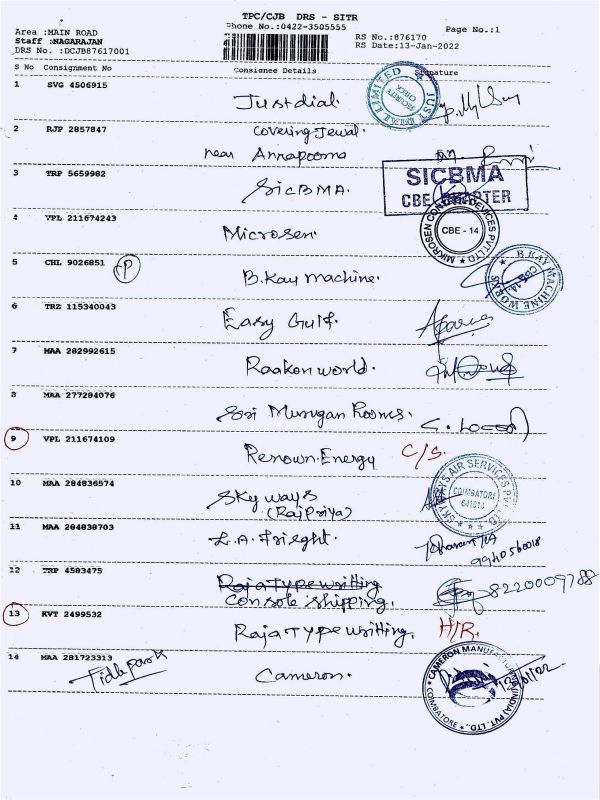 TPC/CJB DRS - SITR
Phone No.:0422-3505555
Page No.:1
Area :MAIN ROAD
Staff :NAGARAJAN
DRS No. :DCJB87617001
RS No.:876170
RS Date:13-Jan-2022
S No Consignment No Consignee Details Signature
1 SVG 4506915 Justdial.
JUST DIAL LIMITED SECURITY CHECK
2 RJP 2857847 Covering Jewal.
near Annapoorna
3 TRP 5659982 SICBMA.
SICBMA
CBE CHAPTER
4 VPL 211674243 Microsen.
MIKROSEN CONTROL DEVICES PVT LTD
CBE - 14
5 CHL 9026851 P B.Kay machine.
B.KAY MACHINE WORKS
CBE-14.
6 TRZ 115340043 Easy Gulf.
7 MAA 282992615 Raakon world.
8 MAA 277284076 Sri Murugan Rooms.
9 VPL 211674109 Renown.Energy C/S.
10 MAA 284836574 Sky ways
(RajPriya)
SKYWAYS AIR SERVICES PVT
COIMBATORE
641014
11 MAA 284838703 L.A. Frieght.
9940560018
12 TRP 4583475 Raja Type writting
Console shipping. 8220009788
13 KVT 2499532 Raja Type writting. H/R.
14 MAA 281723313 Cameron.
Tidle park
CAMERON MANUFACTURING (INDIA) PVT. LTD.,
COIMBATORE